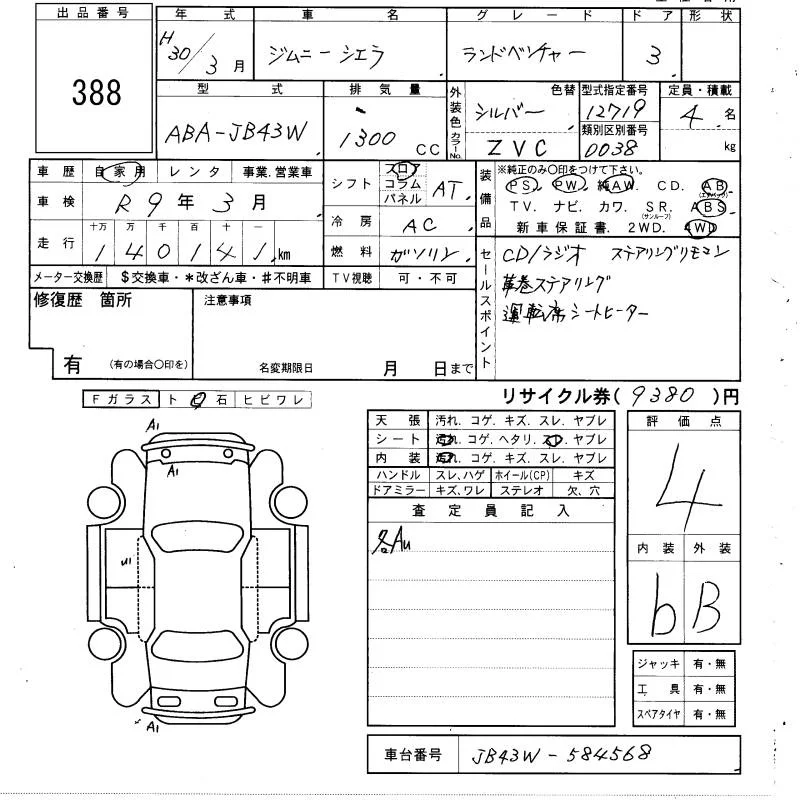 出品番号
388
年式
H30/3月
車名
ジムニーシエラ
グレード
ランドベンチャー
ドア 形状
3
型式
ABA-JB43W
排気量
1300 CC
外装色
色替
シルバー
カラーNo.
ZVC
型式指定番号
12719
類別区別番号
0038
定員・積載
4 名
kg
車歴 自家用 レンタ 事業.営業車
車検 R9年3月
走行 十万 万 千 百 十 一
140141 km
メーター交換歴 $交換車・*改ざん車・#不明車
シフト フロア コラム パネル AT
冷房 AC
燃料 ガソリン
TV視聴 可・不可
装備品
※純正のみ〇印をつけて下さい。
PS. PW. 純AW. CD. AB(エアバッグ)
TV. ナビ. カワ. SR.(サンルーフ) ABS
新車保証書. 2WD. 4WD
セールスポイント
CD/ラジオ ステアリングリモコン
革巻ステアリング
運転席シートヒーター
修復歴 箇所
有 (有の場合〇印を)
注意事項
名変期限日 月 日まで
リサイクル券(9380)円
Fガラス ト ビ 石 ヒビワレ
天張 汚れ. コゲ. キズ. スレ. ヤブレ
シート 汚れ. コゲ. ヘタリ. スレ. ヤブレ
内装 汚れ. コゲ. キズ. スレ. ヤブレ
ハンドル スレ,ハゲ ホイール(CP) キズ
ドアミラー キズ,ワレ ステレオ 欠、穴
査定員記入
各AU
評価点
4
内装 外装
b B
ジャッキ 有・無
工具 有・無
スペアタイヤ 有・無
A1
A1
U1
A1
車台番号 JB43W-584568